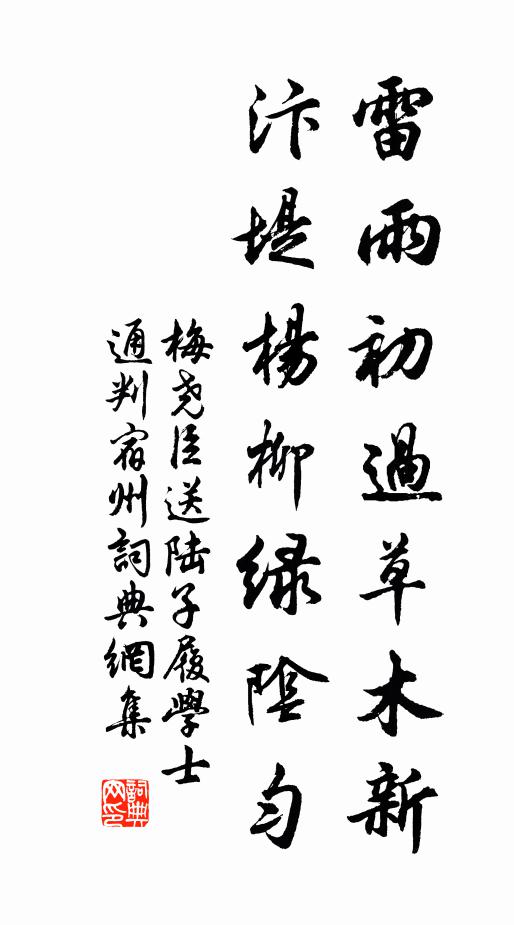 雷雨初過草木新
汴堤楊柳緑陰勻
梅堯臣送陆子履學士
通判宿州詞典網集
詞典网印